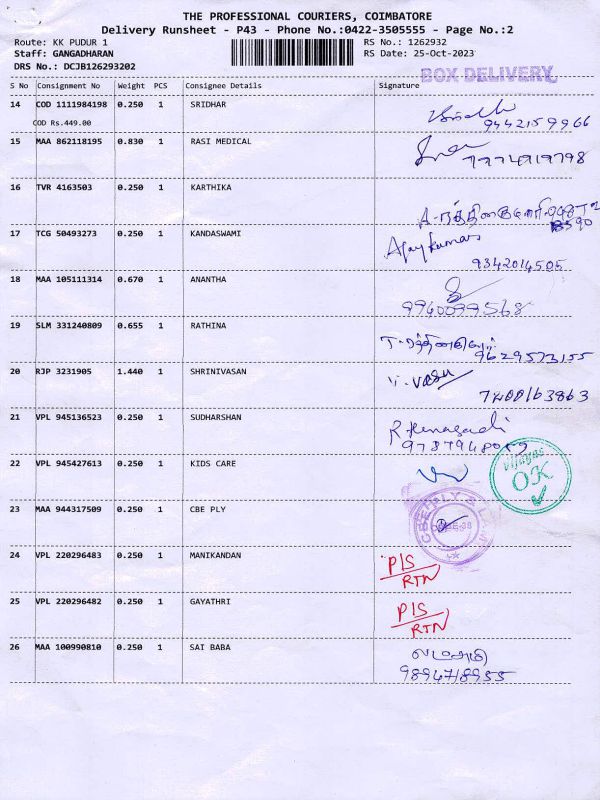 THE PROFESSIONAL COURIERS, COIMBATORE
Delivery Runsheet - P43 - Phone No.:0422-3505555 - Page No.:2
Route: KK PUDUR 1 RS No.: 1262932
Staff: GANGADHARAN RS Date: 25-Oct-2023
DRS No.: DCJB126293202
BOX DELIVERY
S No Consignment No Weight PCS Consignee Details Signature
14 COD 1111984198 0.250 1 SRIDHAR
COD Rs.449.00
9442159966
15 MAA 862118195 0.830 1 RASI MEDICAL
16 TVR 4163503 0.250 1 KARTHIKA
17 TCG 50493273 0.250 1 KANDASWAMI Ajaykumar
9342014505
18 MAA 105111314 0.670 1 ANANTHA
19 SLM 331240809 0.655 1 RATHINA
9629573155
20 RJP 3231905 1.440 1 SHRINIVASAN V. Vasu
7400163863
21 VPL 945136523 0.250 1 SUDHARSHAN
22 VPL 945427613 0.250 1 KIDS CARE
OK
23 MAA 944317509 0.250 1 CBE PLY
24 VPL 220296483 0.250 1 MANIKANDAN P/S
RTN
25 VPL 220296482 0.250 1 GAYATHRI P/S
RTN
26 MAA 100990810 0.250 1 SAI BABA
9894718955